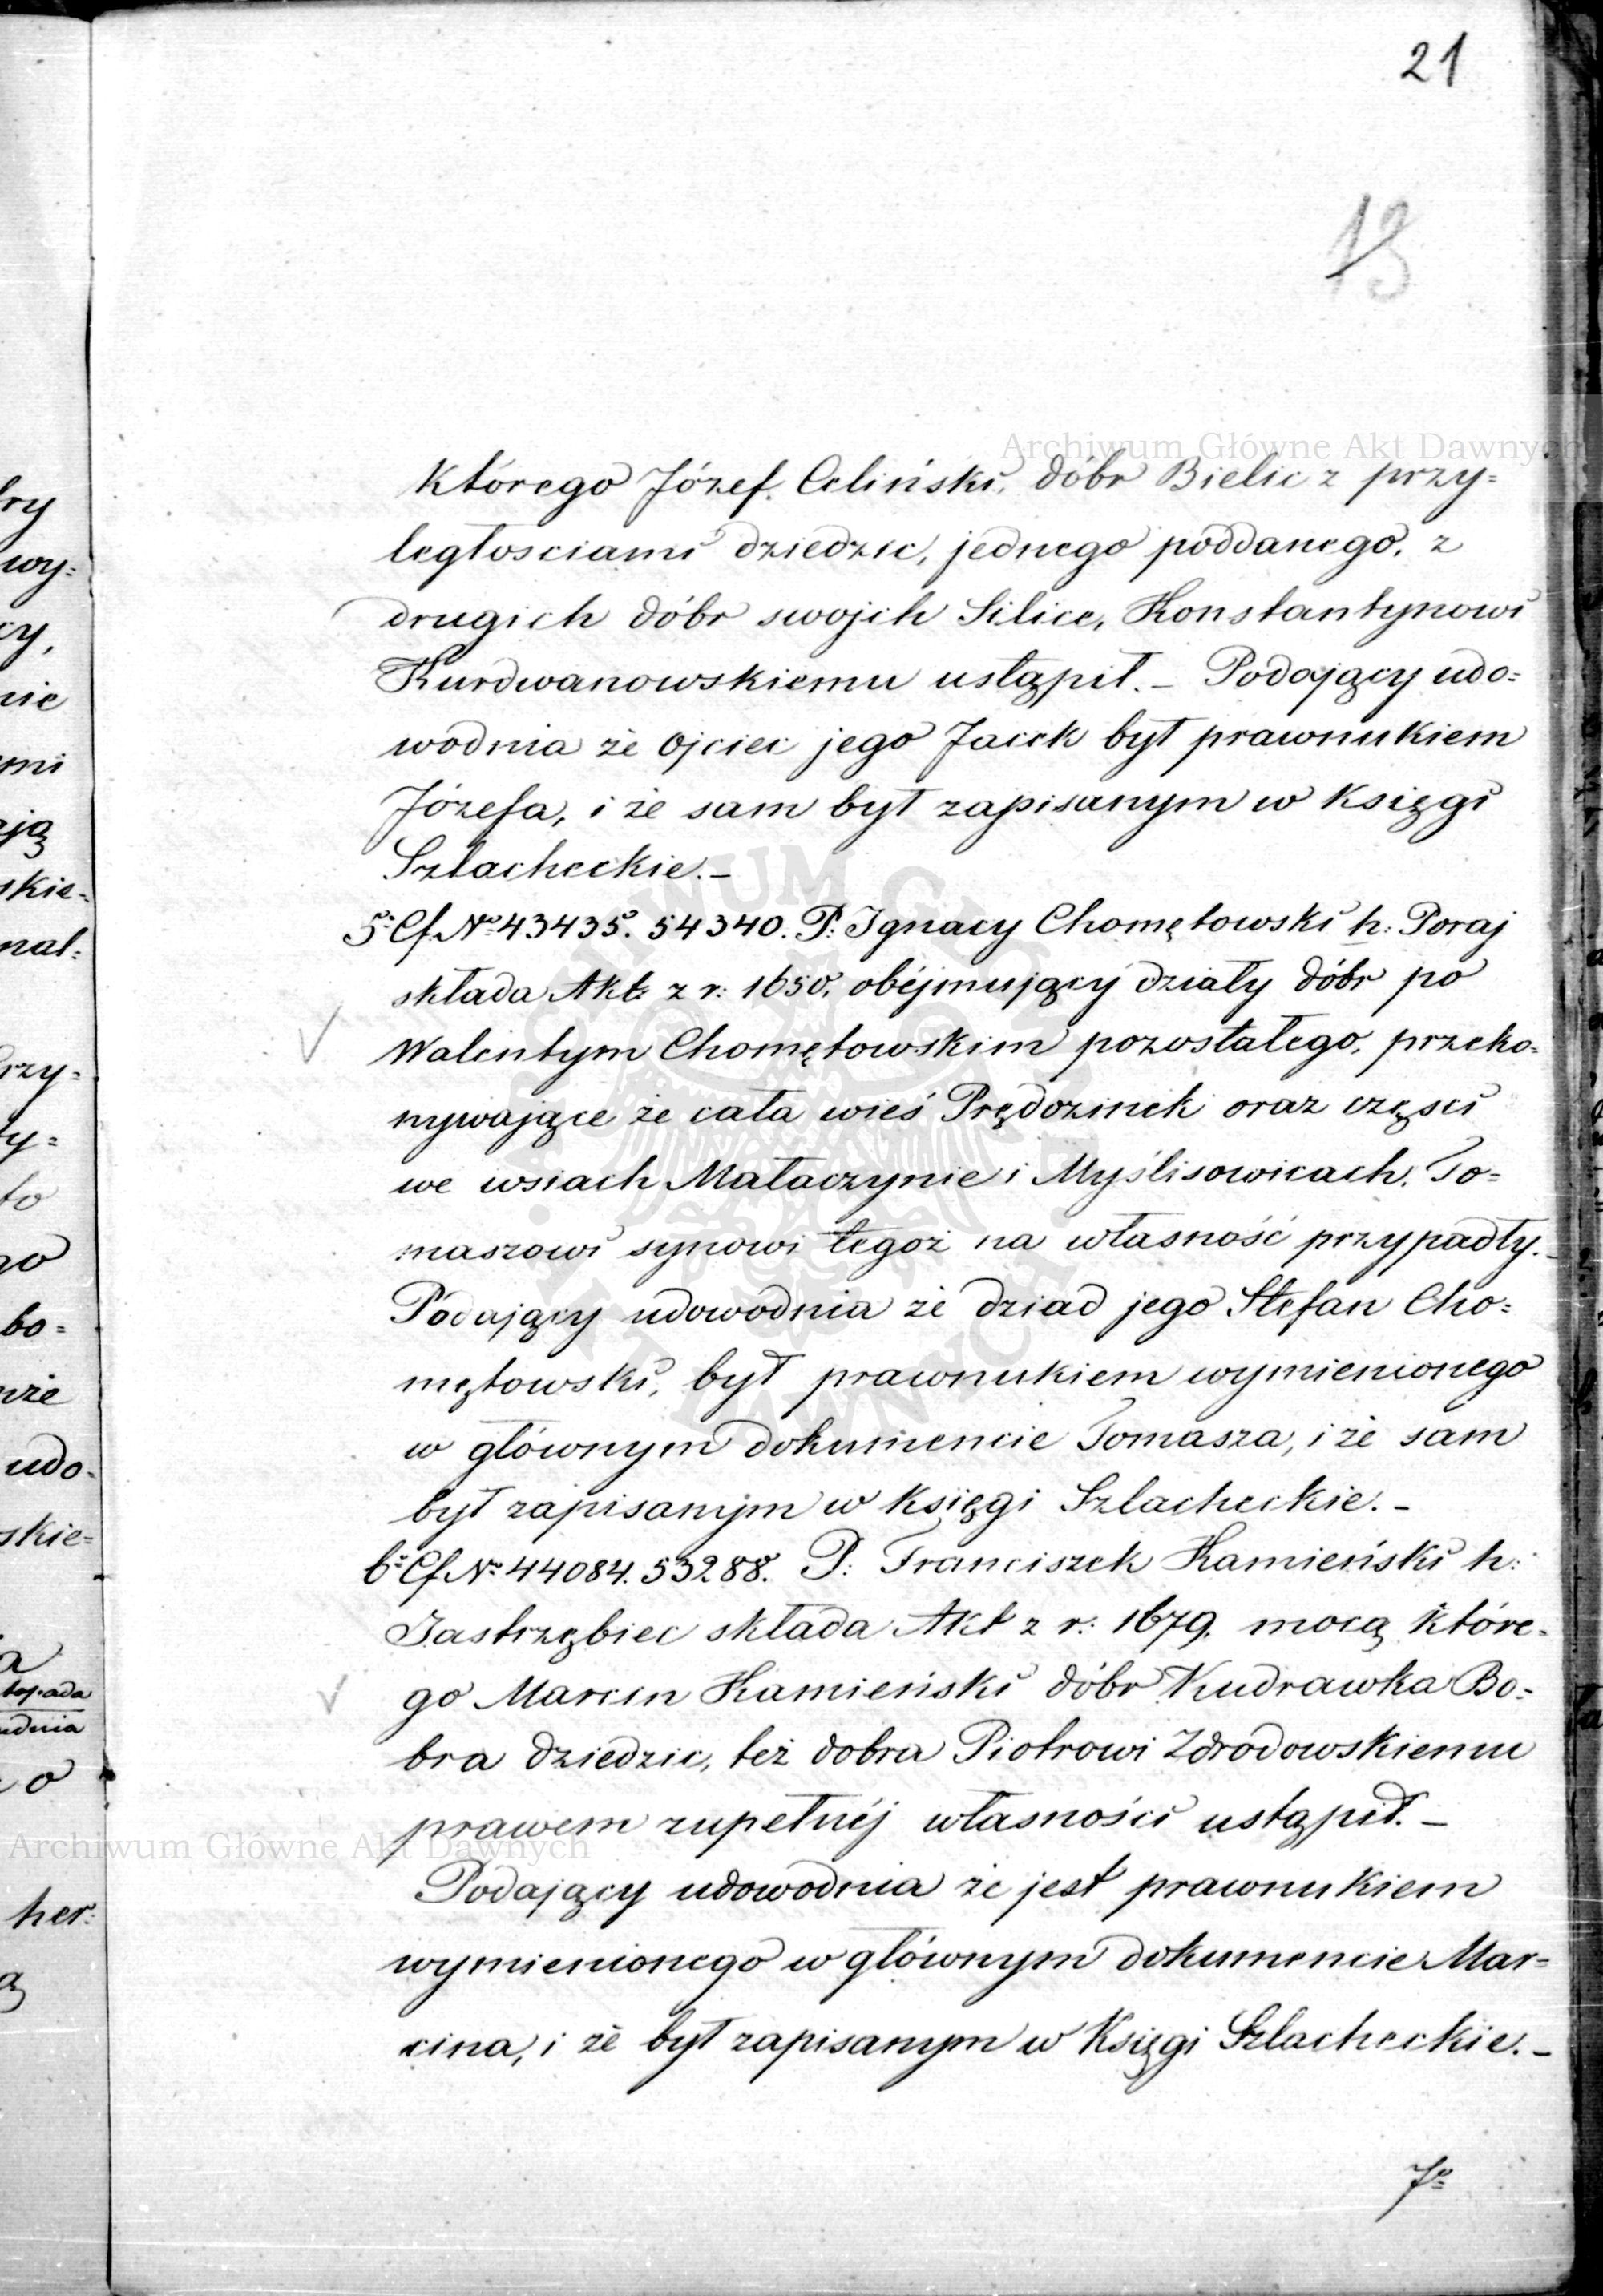 21
13
Archiwum Główne Akt Dawnych
Którego Józef Celiński, dóbr Bielic z przy=
ległosciami dziedzic, jednego poddanego, z
drugich dóbr swojch Silice, Konstantynowi
Kurdwanowskiemu ustąpił. – Podający udo=
wodnia że Ojciec jego Jacek był prawnukiem
Józefa, i że sam był zapisanym w Księgi
Szlacheckie. –
5º Cf. Nº 43435. 54340. P: Ignacy Chomętowski h: Poraj
składa Akt z r: 1650, obéjmujący działy dóbr po
Walentym Chomętowskim pozostałego, przeko=
nywające że cała wieś Prędozinek oraz częsci
we wsiach Małaczynie i Myślisowicach, To=
maszowi synowi tegoż na własność przypadły. –
Podający udowodnia że dziad jego Stefan Cho=
mętowski, był prawnukiem wymienionego
w głównym dokumencie Tomasza, i że sam
był zapisanym w Księgi Szlacheckie. –
6º Cf. Nº 44084. 53288. P: Franciszek Kamieński h:
Jastrzębiec składa Akt z r: 1679, mocą które=
go Marcin Kamieński dóbr Kudrawka Bo=
bra dziedzic, też dobra Piotrowi Zdrodowskiemu
prawem zupełnéj własności ustąpił. –
Archiwum Główne Akt Dawnych
Podający udowodnia że jest prawnukiem
wymienionego w głównym dokumencie Mar=
cina, i że był zapisanym w Księgi Szlacheckie. –
7º